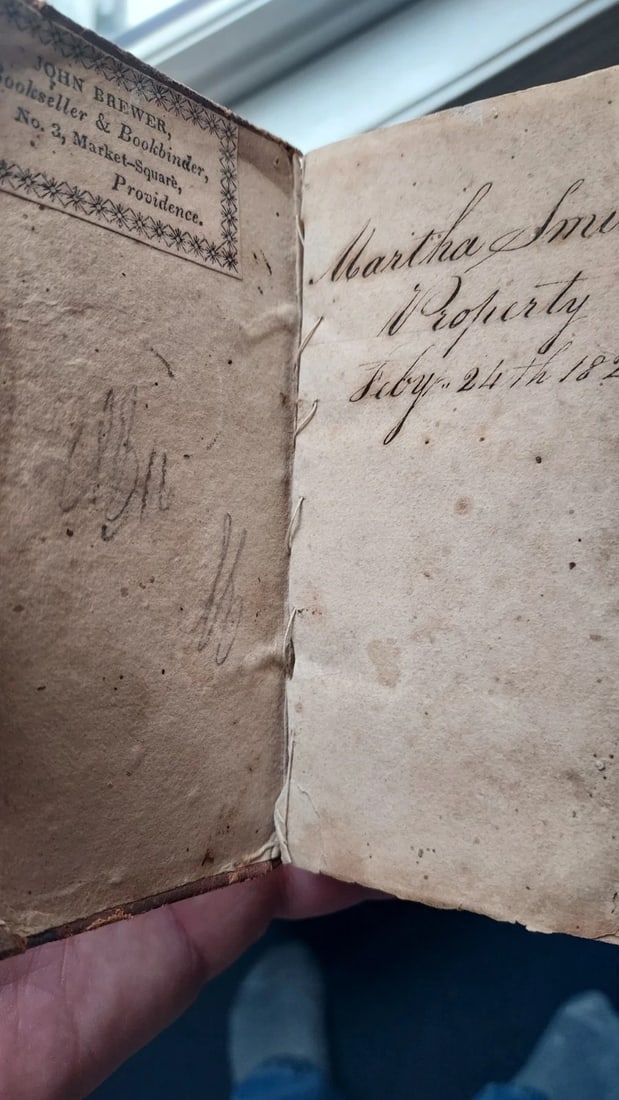 JOHN BREWER,
Bookseller & Bookbinder,
No. 3, Market-Square,
Providence.
Martha
Property
Feby. 24th 182